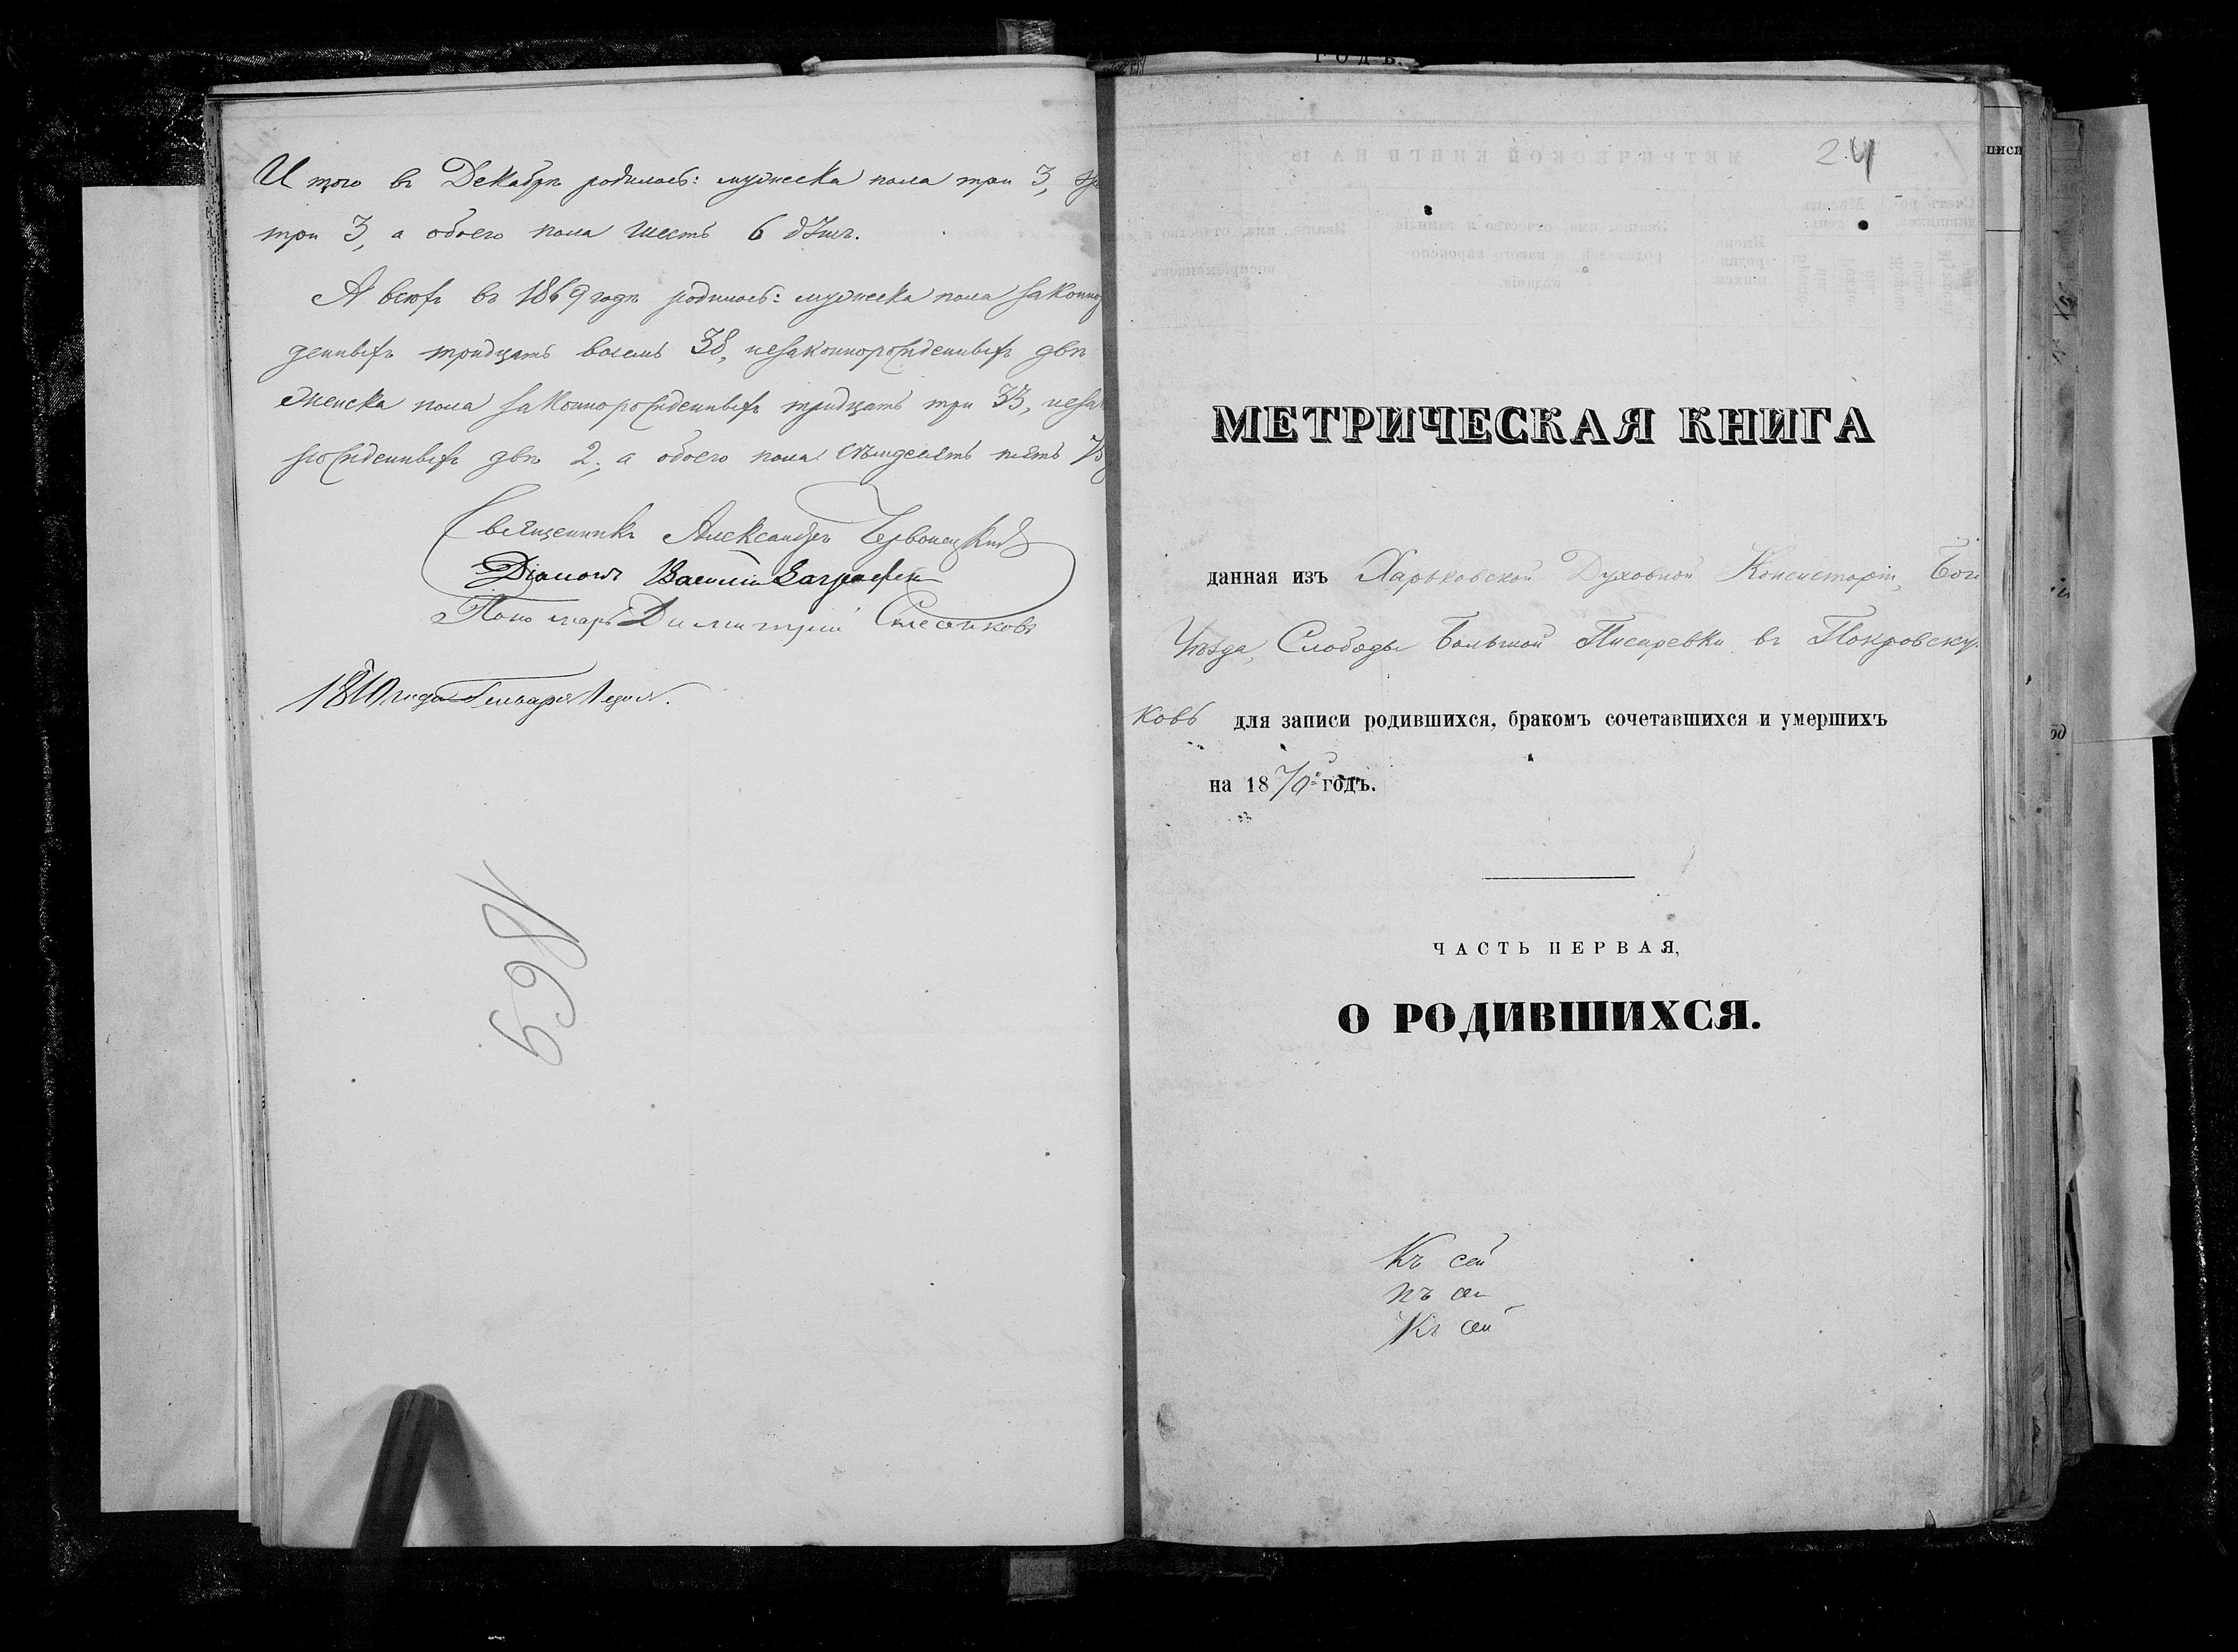 Итого въ Декабрѣ родилось: мужеска пола три 3,
три 3, а обоего пола шесть 6 дѣтъ.
А всѣхъ въ 1869 годѣ родилось: мужеска пола законно
денныхъ тридцать восемь 38, незаконнорожденныхъ двѣ
женска пола законнорожденныхъ тридцать три 33, неза
рожденныхъ двѣ 2, а обоего пола семдесятъ пять 75
Священникъ Александръ Червонецкій
Діаконъ Василій
Пономарь Димитрій
1870 года Генваря 1 дня.
1869
24
МЕТРИЧЕСКАЯ КНИГА
данная изъ Харьковской Духовной Консисторіи, Бог
Уѣзда, Слободы Большой Писаревки въ Покровскую
ковь для записи родившихся, бракомъ сочетавшихся и умершихъ
на 1870 годъ.
ЧАСТЬ ПЕРВАЯ,
О РОДИВШИХСЯ.
Къ сей
къ се
Къ сей
писи